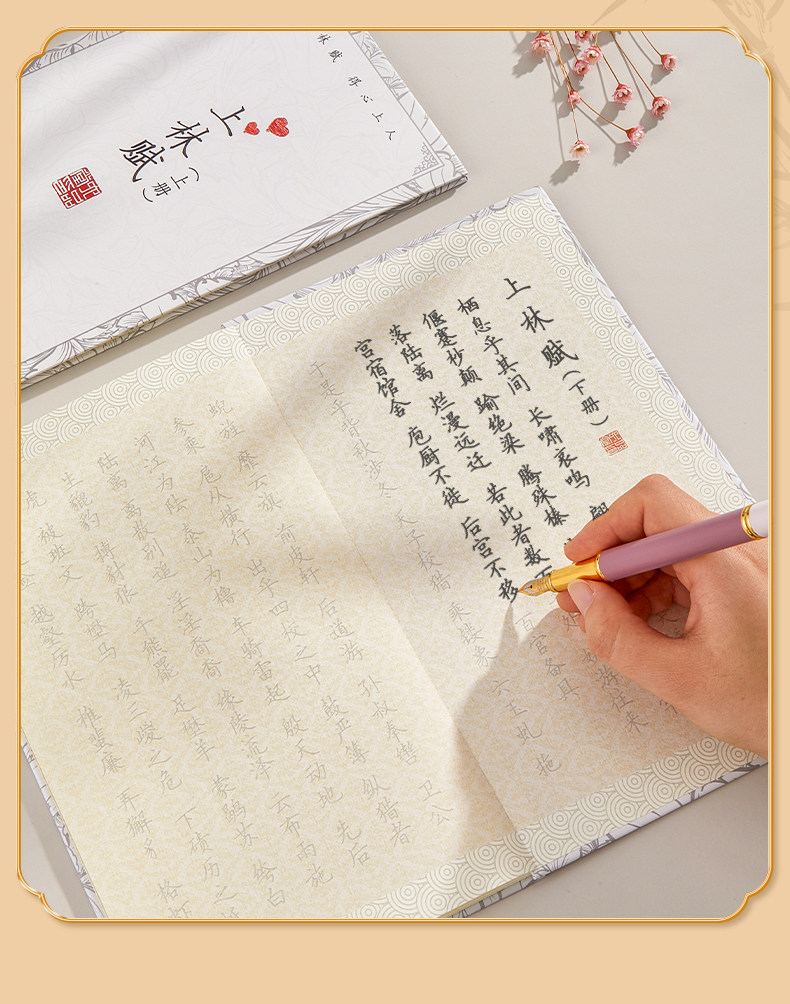 林赋 得心上人
上林赋
(上册)
上林赋(下册)
栖息乎其间 长啸哀鸣 翩
偃蹇杪颠 踰绝梁 腾殊榛
落陆离 烂漫远迁 若此者数百 处 嬉游往来
宫宿馆舍 庖厨不徙 后宫不移 百官备具
于是乎背秋涉冬 天子校猎 乘镂象 六玉虬 拖
蜺旌 靡云旗 前皮轩 后道游 孙叔奉辔 卫公
参乘 扈从横行 出乎四校之中 鼓严簿 纵猎者
河江为阹 泰山为橹 车骑雷起 殷天动地 先后
陆离 离散别追 淫淫裔裔 缘陵流泽 云布雨施
生貔豹 搏豺狼 手熊罴 足壄羊 蒙鹖苏 绔白
虎 被班文 跨壄马 凌三嵕之危 下碛历之
险 越壑厉水 椎蜚廉 弄獬豸 格虾